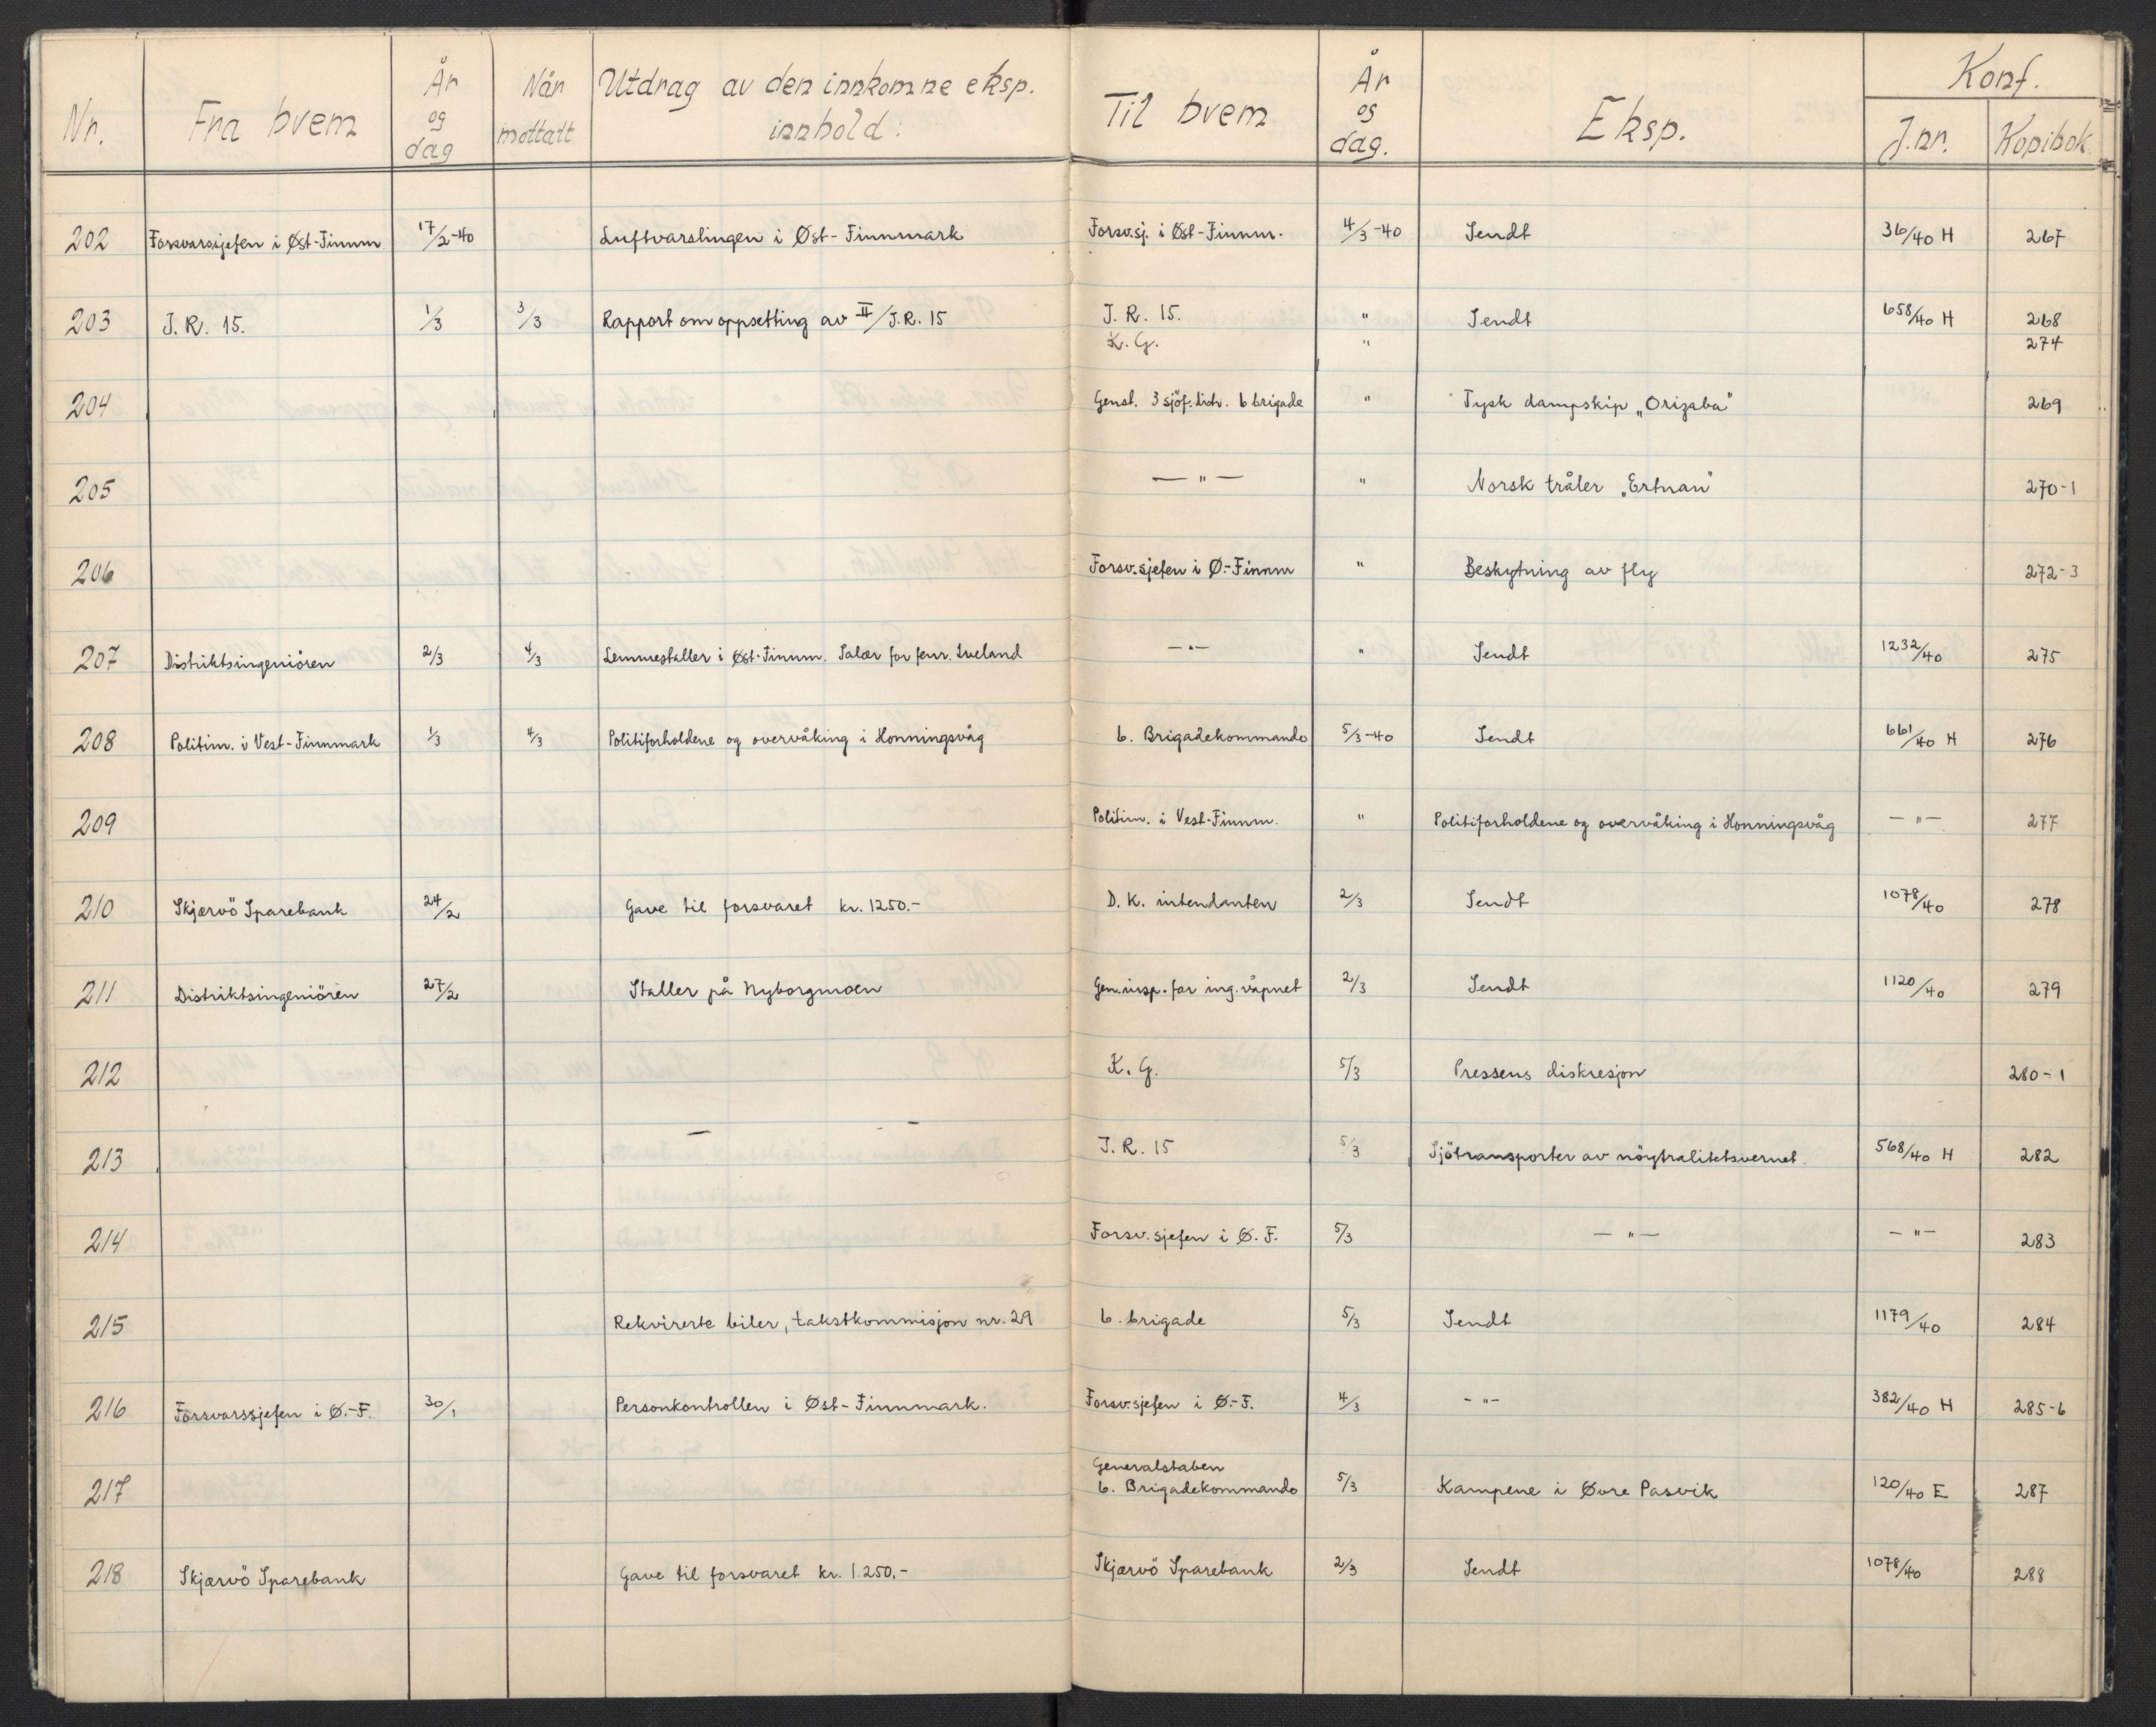 Nr. Fra hvem År og dag Når mottatt Utdrag av den innkomne eksp. innhold: Til hvem År og dag. Eksp. Konf. J.nr. Kopibok
202 Forsvarssjefen i Øst-Finnm 17/2-40 Luftvarslingen i Øst-Finnmark Forsv.sj. i Øst-Finnm. 4/3-40 Sendt 36/40 H 267
203 J.R. 15. 1/3 3/3 Rapport om oppsetting av II/J.R. 15 J.R. 15. " Sendt 658/40 H 268
K.G. " 274
204 Genst. 3 sjöf.distr. 6 brigade " Tysk dampskip „Orizaba" 269
205 — " — " Norsk tråler „Ertnan" 270-1
206 Forsv.sjefen i Ø.-Finnm " Beskytning av fly 272-3
207 Distriktsingeniören 2/3 4/3 Lemmestaller i Øst-Finnm. Salær for fenr. Iveland — " — " Sendt 1232/40 275
208 Politim. i Vest-Finnmark 1/3 4/3 Politiforholdene og overvåking i Honningsvåg 6. Brigadekommando 5/3-40 Sendt 661/40 H 276
209 Politim. i Vest-Finnm. " Politiforholdene og overvåking i Honningsvåg — " — 277
210 Skjærvö Sparebank 24/2 Gave til forsvaret kr. 1250.- D.K. intendanten 2/3 Sendt 1078/40 278
211 Distriktsingeniören 27/2 Staller på Nyborgmoen Gen.insp. for ing.våpnet 2/3 Sendt 1120/40 279
212 K.G. 5/3 Pressens diskresjon 280-1
213 J.R. 15 5/3 Sjötransporter av nöytralitetsvernet. 568/40 H 282
214 Forsv.sjefen i Ø.F. 5/3 — " — — " — 283
215 Rekvirerte biler, takstkommisjon nr. 29 6. brigade 5/3 Sendt 1179/40 284
216 Forsvarssjefen i Ø.-F. 30/1 Personkontrollen i Øst-Finnmark. Forsv.sjefen i Ø.-F. 4/3 - " - 382/40 H 285-6
217 Generalstaben
6. Brigadekommando 5/3 Kampene i Øvre Pasvik 120/40 E 287
218 Skjærvö Sparebank Gave til forsvaret kr. 1.250.- Skjærvö Sparebank 2/3 Sendt 1078/40 288